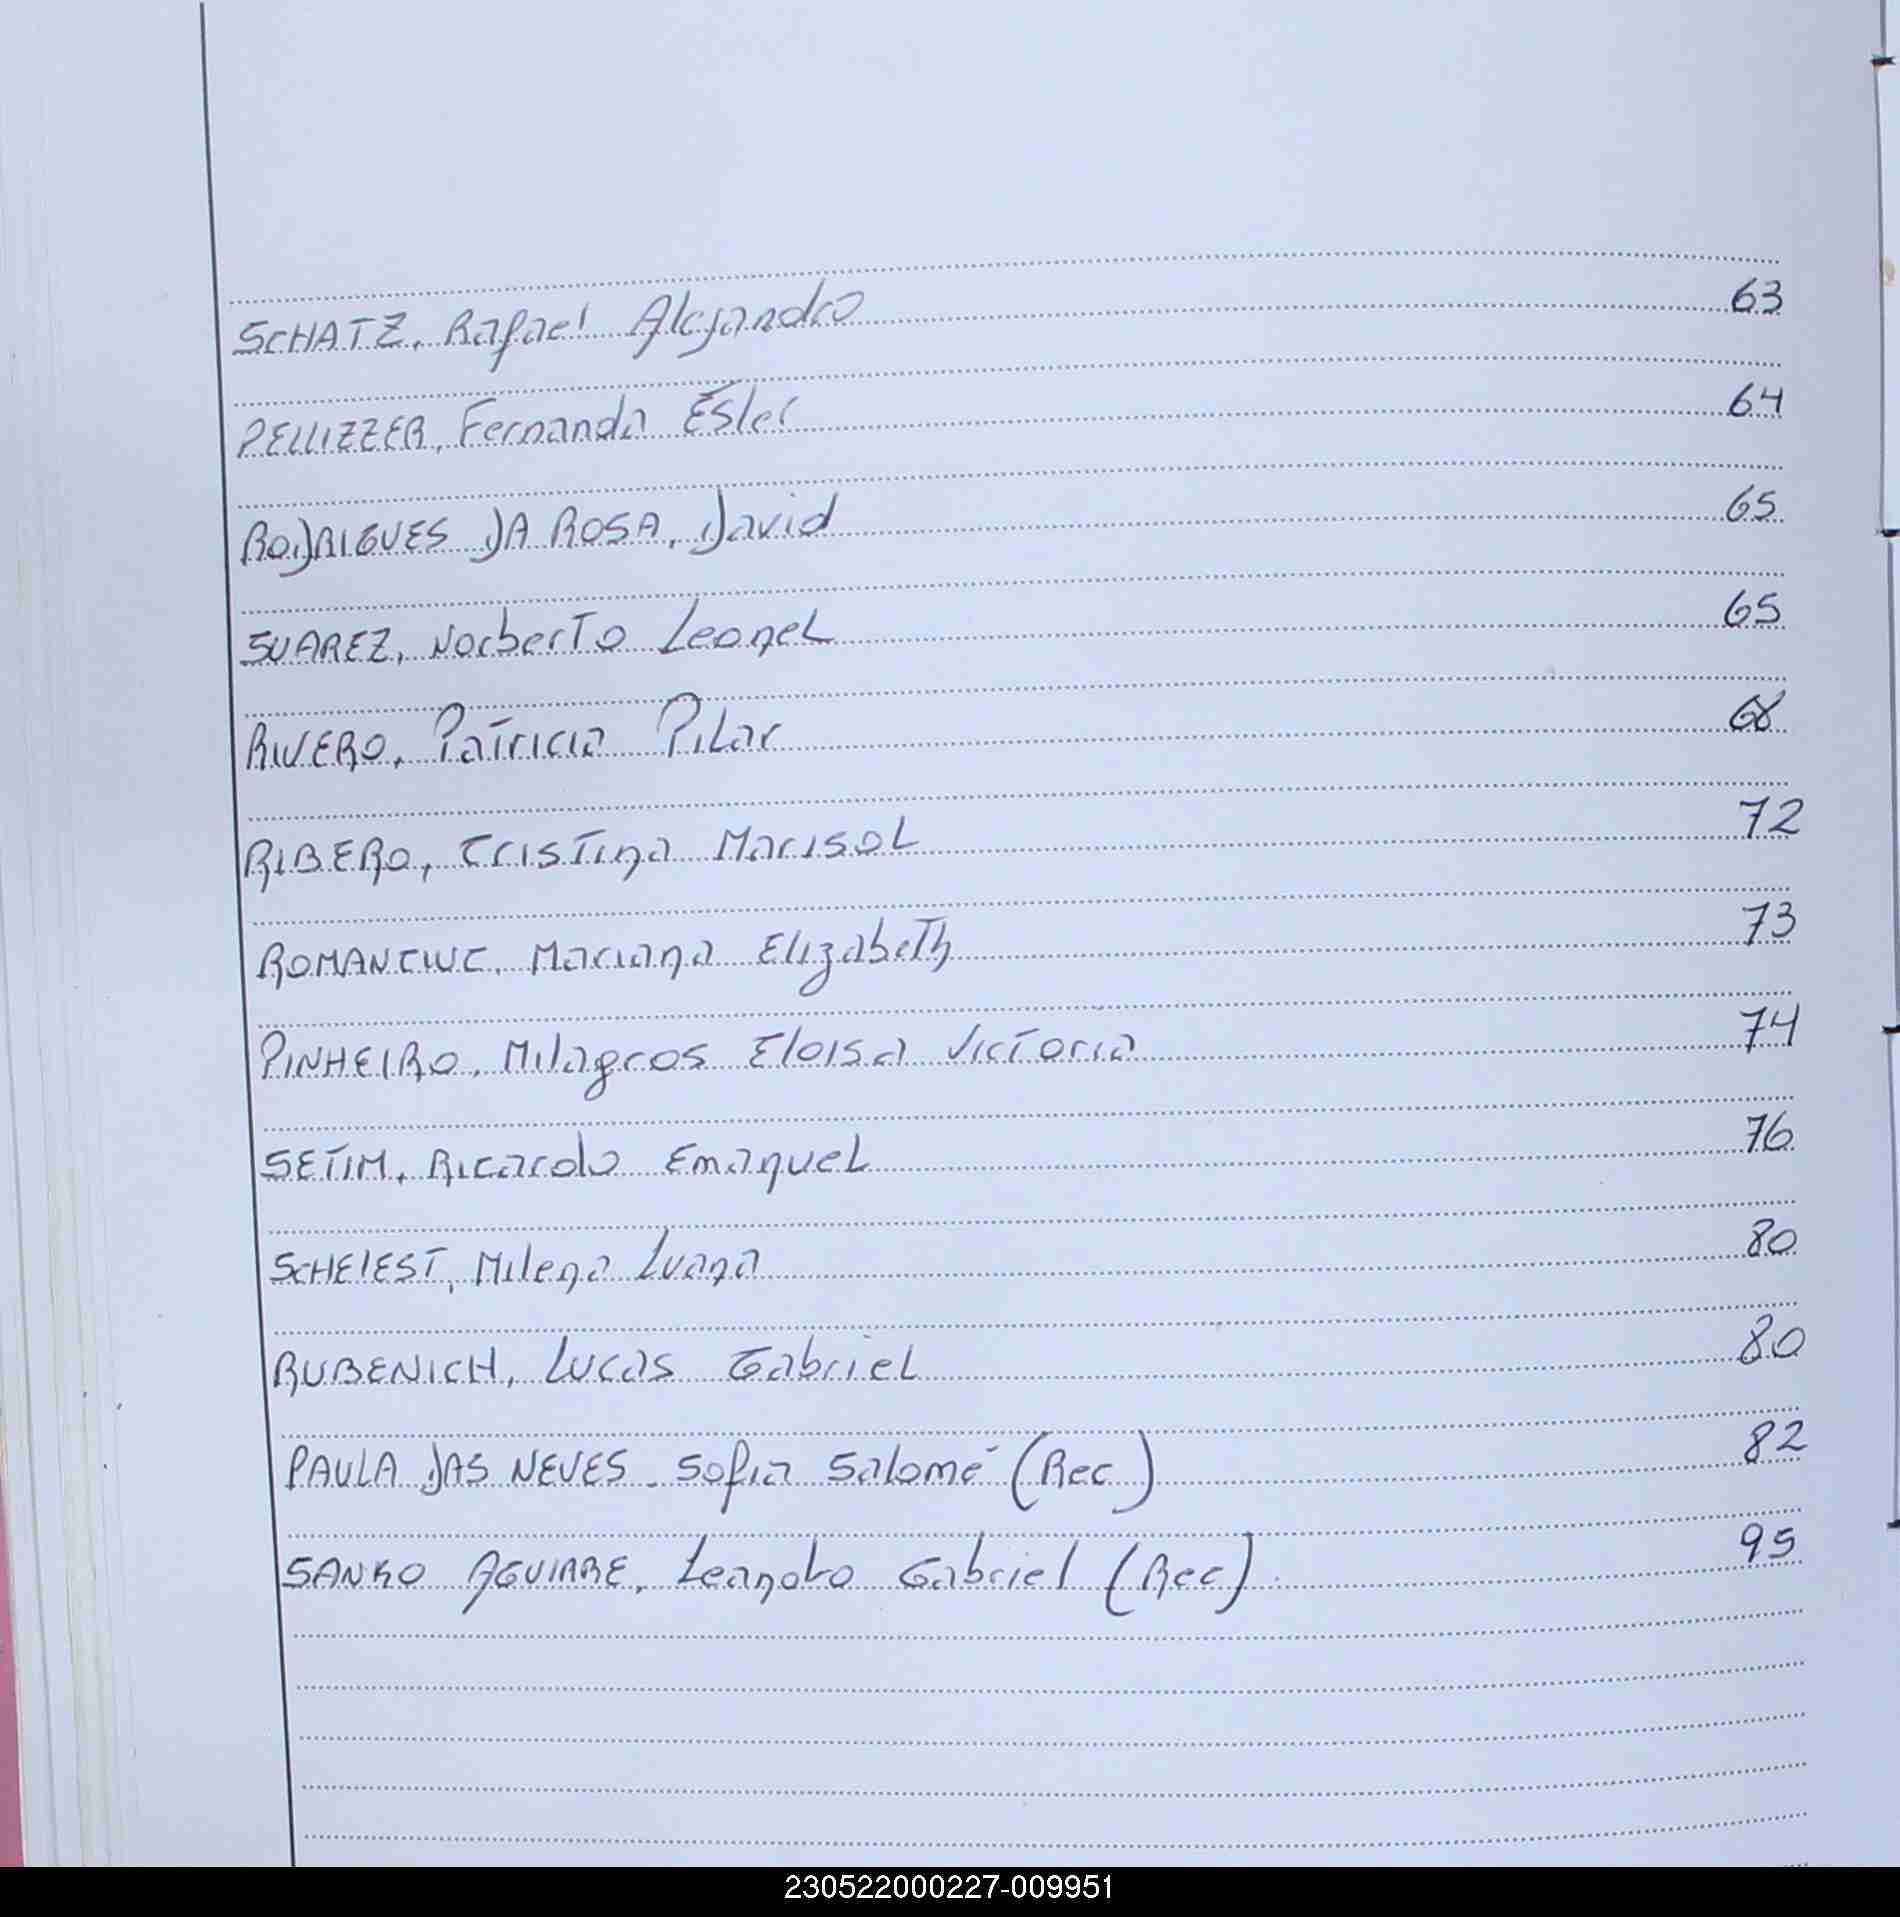 SCHATZ, Rafael Alejandro 63
PELLIZZER, Fernanda Ester 64
RODRIGUES DA ROSA, David 65
SUAREZ, Norberto Leonel 65
RIVERO, Patricia Pilar 68
RIBERO, Cristina Marisol 72
ROMANCIUC, Mariana Elizabeth 73
PINHEIRO, Milagros Eloisa Victoria 74
SETIM, Ricardo Emanuel 76
SCHEIEST, Milena Luana 80
RUBENICH, Lucas Gabriel 80
PAULA DAS NEVES. Sofia Salomé (Rec) 82
SANKO AGUIARE, Leandro Gabriel (Rec) 95
230522000227-009951